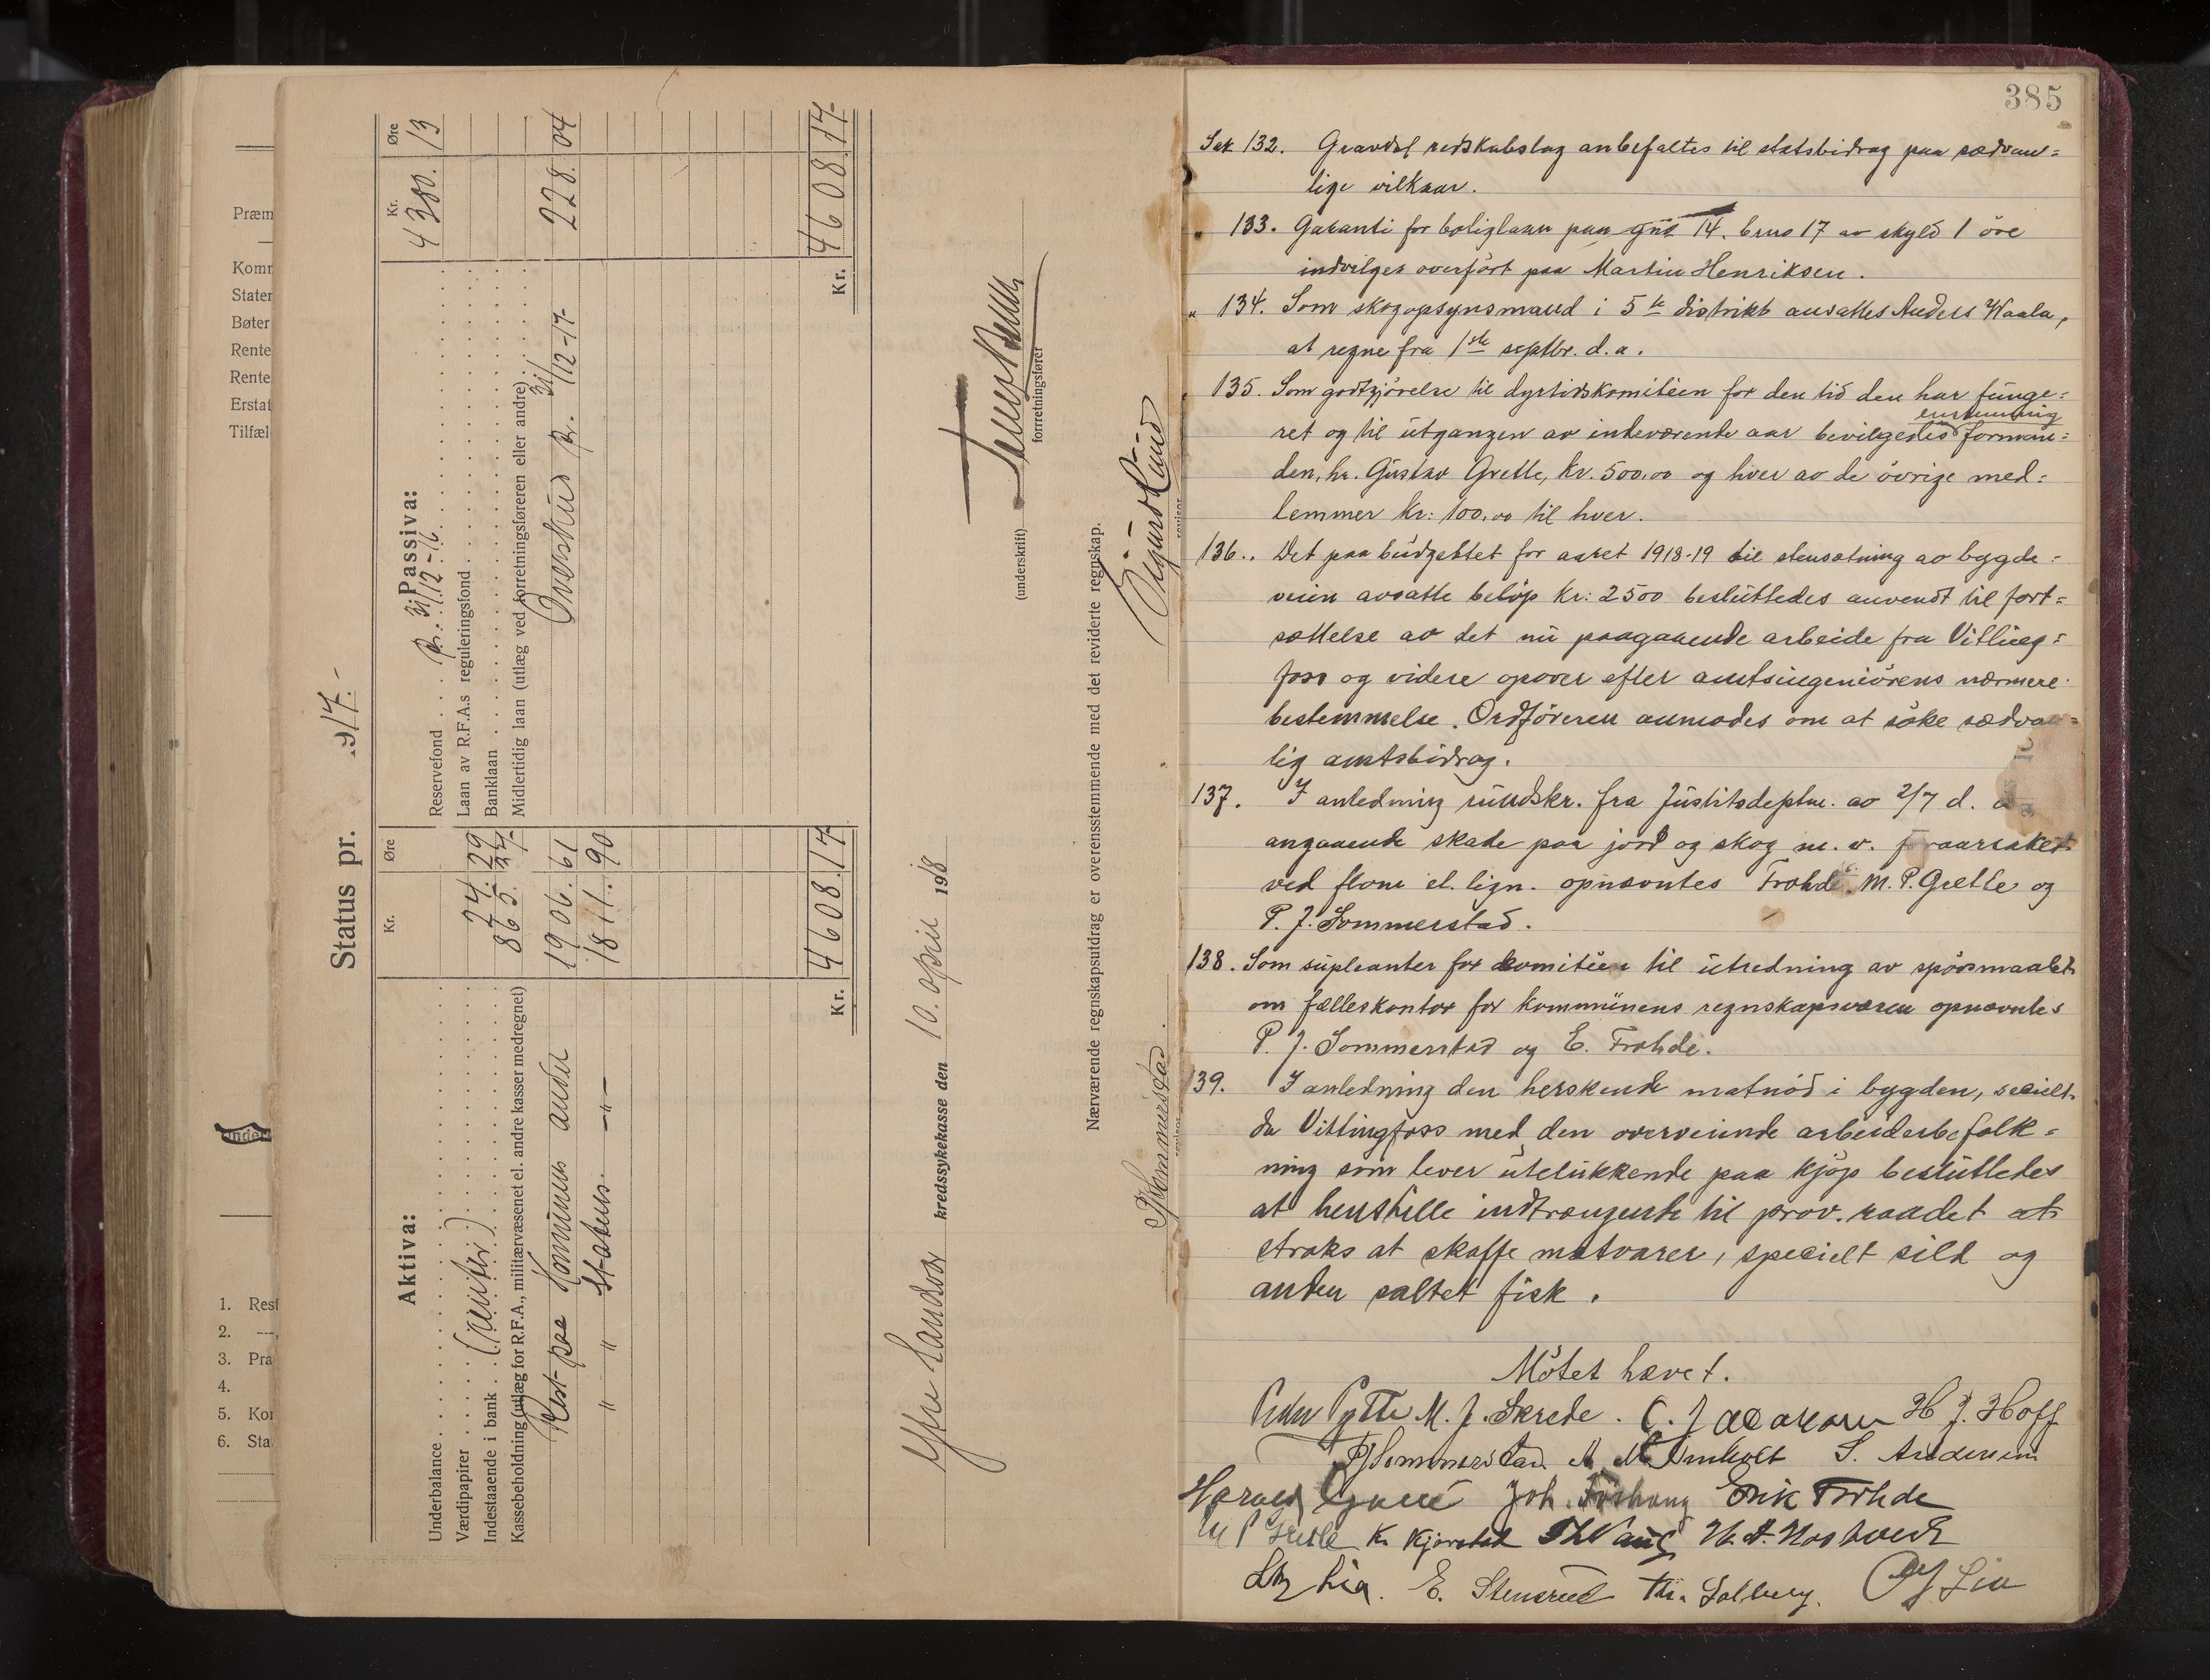 Præm
Komr
Stater
Bøter
Rente
Rente
Erstat
Tilfæl
1. Rest
2. —,
3. Pra
4.
5. Kor
6. Sta
Status pr. 1917.-
Aktiva:
Kr. Øre
Underbalance
Værdipapirer
Indestaaende i bank 24. 29
Kassebeholdning (utlæg for R.F.A., militærvæsenet el. andre kasser medregnet)
Rest paa Kommunens andel 1906. 61
" " Statens —"— 1811. 90
Kr. 4608. 17
Passiva:
Kr. Øre
Reservefond pr. 31/12-16 4380. 13
Laan av R.F.A.s reguleringsfond
Banklaan
Midlertidig laan (utlæg ved forretningsføreren eller andre)
Overskud pr. 31/12-17- 228. 04
Kr. 4608. 17-
Ytre Sandsvær kredssykekasse den 10. april 1918
(underskrift)
forretningsfører
Nærværende regnskapsutdrag er overensstemmende med det reviderte regnskap.
PJSommerstad
revisor
Sigurd Lund
revisor
385
Sak 132. Gravdal redskabslag anbefaltes til statsbidrag paa sædvan=
lige vilkaar.
" 133. Garanti for boliglaan paa gno 14. bruo 17 av skyld 1 öre
indvilges overført paa Martin Henriksen.
" 134. Som skogopsynsmand i 5te distrikt ansattes Anders Waala,
at regne fra 1ste septbr. d.a.
135. Som godtgjörelse til dyrtidskomitéen for den tid den har funge=
enstemmig
ret og til utgangen av indeværende aar bevilgedes forman=
den, hr. Gustav Grette, kr. 500,00 og hver av de övrige med=
lemmer kr: 100,00 til hver.
136.. Det paa budgettet for aaret 1918-19 til stensætning av bygde=
veien avsatte belöp kr: 2500 besluttedes anvendt til fort=
sættelse av det nu paagaaende arbeide fra Vitting=
foss og videre opover efter amtsingeniörens nærmere
bestemmelse. Ordföreren anmodes om at söke sædvan=
lig amtsbidrag.
137. I anledning rundskr. fra Justitsdeptm. av 2/7 d. a
angaaende skade paa jord og skog m. v. foraarsaket
ved flom el. lign. opnævntes Frohde. M. P. Grette og
P. J. Sommerstad.
138. Som supleanter for komitéen til utredning av spörsmaalet
om fælleskontor for kommunens regnskapsvæsen opnævntes
P. J. Sommerstad og E. Frohde.
139. I anledning den herskende matnöd i bygden, secielt
da Vittingfoss med den overveiende arbeiderbefolk=
ning som lever utelukkende paa kjöp besluttedes
at henstille indtrængende til prov. raadet at
straks at skaffe matvarer, specielt sild og
anden saltet fisk.
Mötet hævet.
Peder Pytte M. J. Skrede. C. Jacobsen H J. Hoff
PJSommerstad A. M. Omholt S. Andersen
Harald Joh. Erik Frohde
M P Grette K. Kjörstad
Lia. E. Stensrud Th. Solberg. Lia